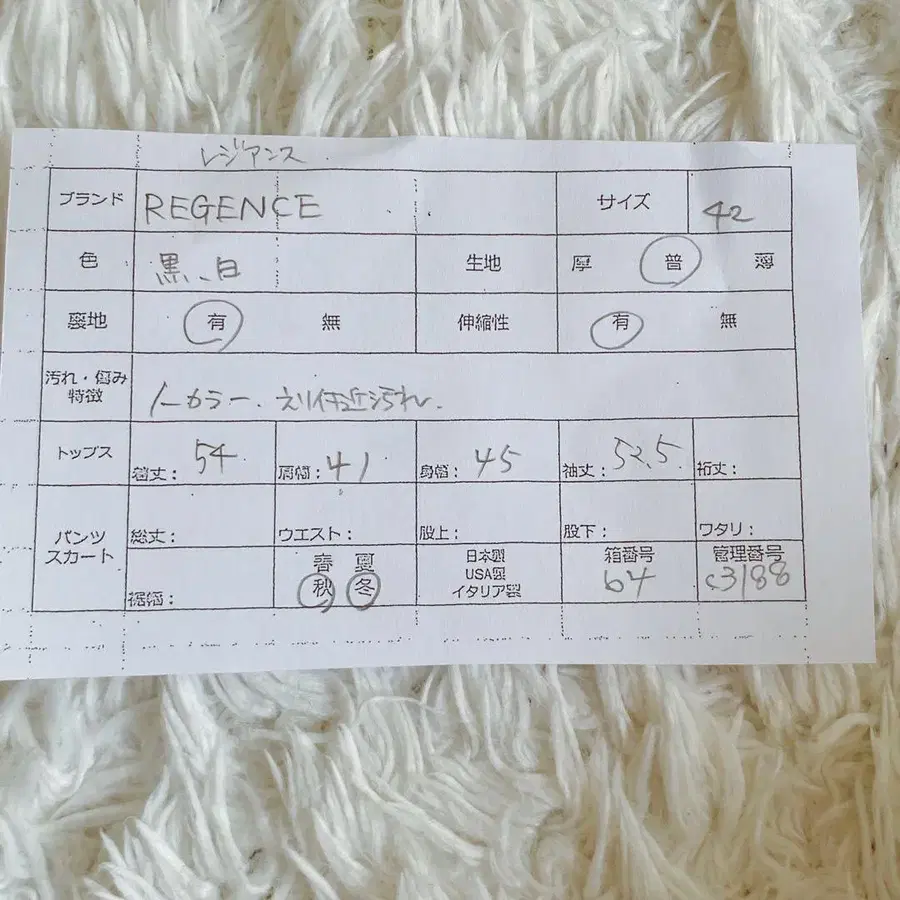 レジアンス
ブランド REGENCE サイズ 42
色 黒、白 生地 厚 普 薄
裏地 有 無 伸縮性 有 無
汚れ・傷み
特徴 ノーカラー、えり付近汚れ、
トップス 着丈： 54 肩幅： 41 身幅： 45 袖丈： 52.5 裄丈：
パンツ
スカート 総丈： ウエスト： 股上： 股下： ワタリ：
裾幅： 春 夏
秋 冬
日本製
USA製
イタリア製
箱番号
64
管理番号
c3188